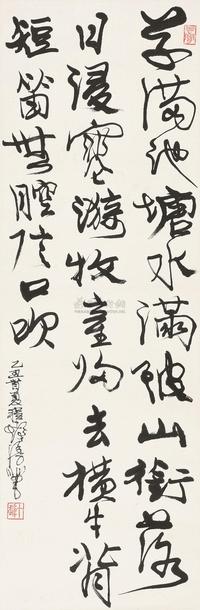 草满池塘水满陂山衔落
日浸寒漪牧童归去横牛背
短笛无腔信口吹
乙丑